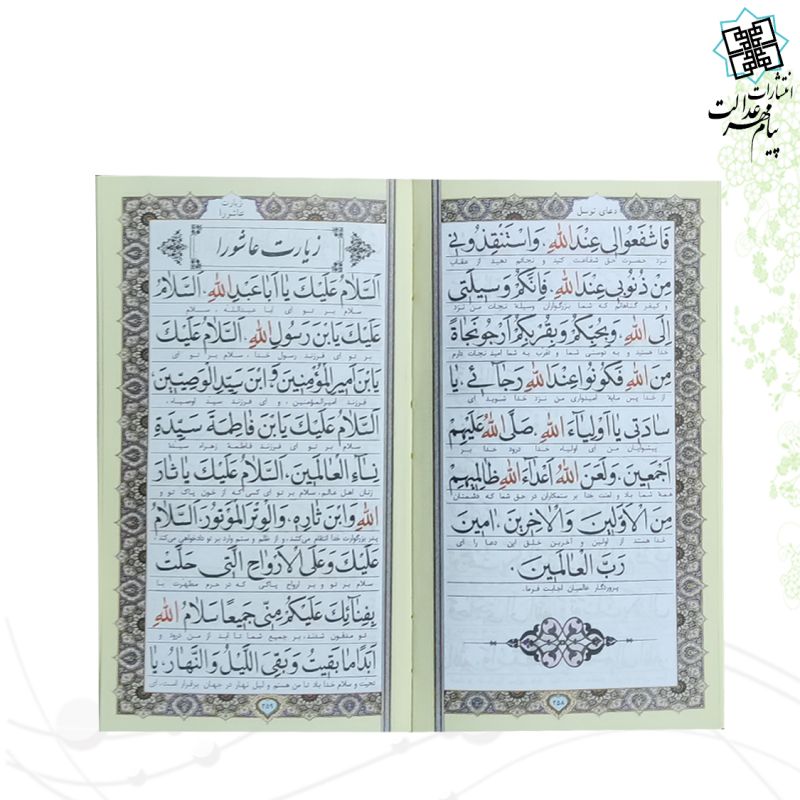 انتشارات
پیام مهر عدالت
دعای توسل
فَاشْفَعُوا لی عِنْدَ اللهِ، وَاسْتَنْقِذُونی
نزد حضرت حق شفاعت کنید و نجاتم دهید از عقاب
مِنْ ذُنُوبی عِنْدَ اللهِ، فَاِنَّکُمْ وَسیلَتی
و کیفر گناهانم که شما بزرگواران وسیله نجات من نزد
اِلَی اللهِ، وَبِحُبِّکُمْ وَبِقُرْبِکُمْ اَرْجُو نَجاةً
خدا هستید و به دوستی شما و تقرب به شما امید نجات دارم
مِنَ اللهِ فَکُونُوا عِنْدَ اللهِ رَجآئی، یا
از خدا پس مایه امیدواری من نزد خدا شوید ای
سادَتی یا اَوْلِیآءَ اللهِ، صَلَّی اللهُ عَلَیْهِمْ
پیشوایان من ای اولیاء خدا درود خدا بر
اَجْمَعینَ، وَلَعَنَ اللهُ اَعْدآءَ اللهِ ظالِمیهِمْ
همه شما باد و لعنت خدا بر ستمکاران در حق شما که دشمنان
مِنَ الْاَوَّلینَ وَالْاٰخِرینَ، امینَ
خدا هستند از اولین و آخرین خلق این دعا را ای
رَبَّ الْعالَمینَ.
پروردگار عالمیان اجابت فرما.
۲۵۸
زیارت
عاشورا
زیارت عاشورا
اَلسَّلامُ عَلَیْکَ یا اَبا عَبْدِ اللهِ، اَلسَّلامُ
سلام بر تو ای ابا عبدالله، سلام
عَلَیْکَ یَا بْنَ رَسُولِ اللهِ، اَلسَّلامُ عَلَیْکَ
بر تو ای فرزند رسول خدا، سلام بر تو ای
یَا بْنَ اَمیرِ الْمُؤْمِنینَ وَ ابْنَ سَیِّدِ الْوَصِیّینَ،
فرزند امیرالمؤمنین، و ای فرزند سید اوصیاء،
اَلسَّلامُ عَلَیْکَ یَا بْنَ فاطِمَةَ سَیِّدَةِ
سلام بر تو ای فرزند فاطمه زهراء سیده
نِسآءِ الْعالَمینَ، اَلسَّلامُ عَلَیْکَ یا ثارَ
زنان اهل عالم، سلام بر تو ای کسی که از خون پاک تو و
اللهِ وَابْنَ ثارِهِ، وَالْوِتْرَ الْمَوْتُورَ، اَلسَّلامُ
پدر بزرگوارت خدا انتقام می‌کشد، و از ظلم و ستم وارد بر تو دادخواهی می‌کند،
عَلَیْکَ وَعَلَی الْاَرْواحِ الَّتی حَلَّتْ
سلام بر تو و بر ارواح پاکی که در حرم مطهرت با
بِفِنآئِکَ عَلَیْکُمْ مِنّی جَمیعًا سَلامُ اللهِ
تو مدفون شدند، بر جمیع شما تا ابد از من درود و
اَبَدًا ما بَقیتُ وَ بَقِیَ اللَّیْلُ وَالنَّهارُ، یا
تحیت و سلام خدا باد تا من هستم و لیل نهار در جهان برقرار است، ای
۲۵۹